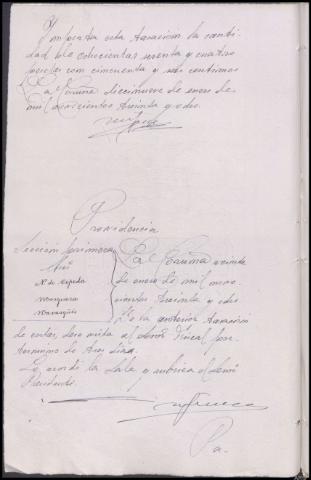 Importa esta tasación la canti-
dad de ochocientas noventa y cuatro
pesetas con cincuenta y seis centimos
La Coruña diecinueve de enero de
mil novecientos treinta y dos.
Providencia
Sección primera
Sres
N. de Cepeda
La Coruña veinte
de enero de mil nove-
cientos treinta y dos
De la anterior tasación
de costas, dese vista al Señor Fiscal por
termino de tres dias.
Lo acordó la Sala y rubrica el Señor
Presidente.